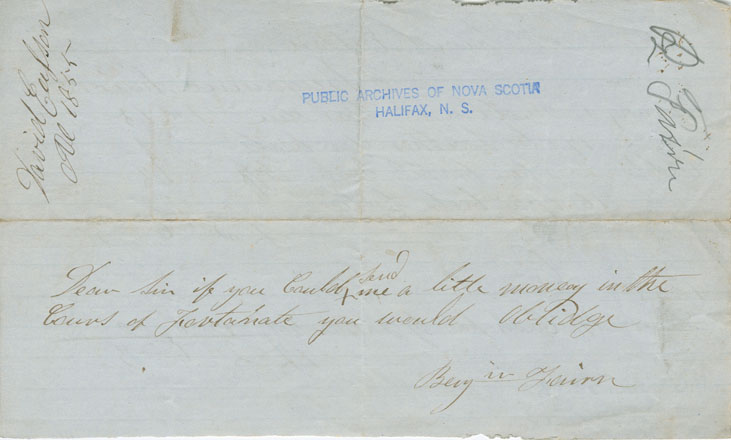 David
1855
PUBLIC ARCHIVES OF NOVA SCOTIA
HALIFAX, N. S.
Dear Sir if you Could send me a little money in the
Cours of fortnate you would Oblidge
Benj n